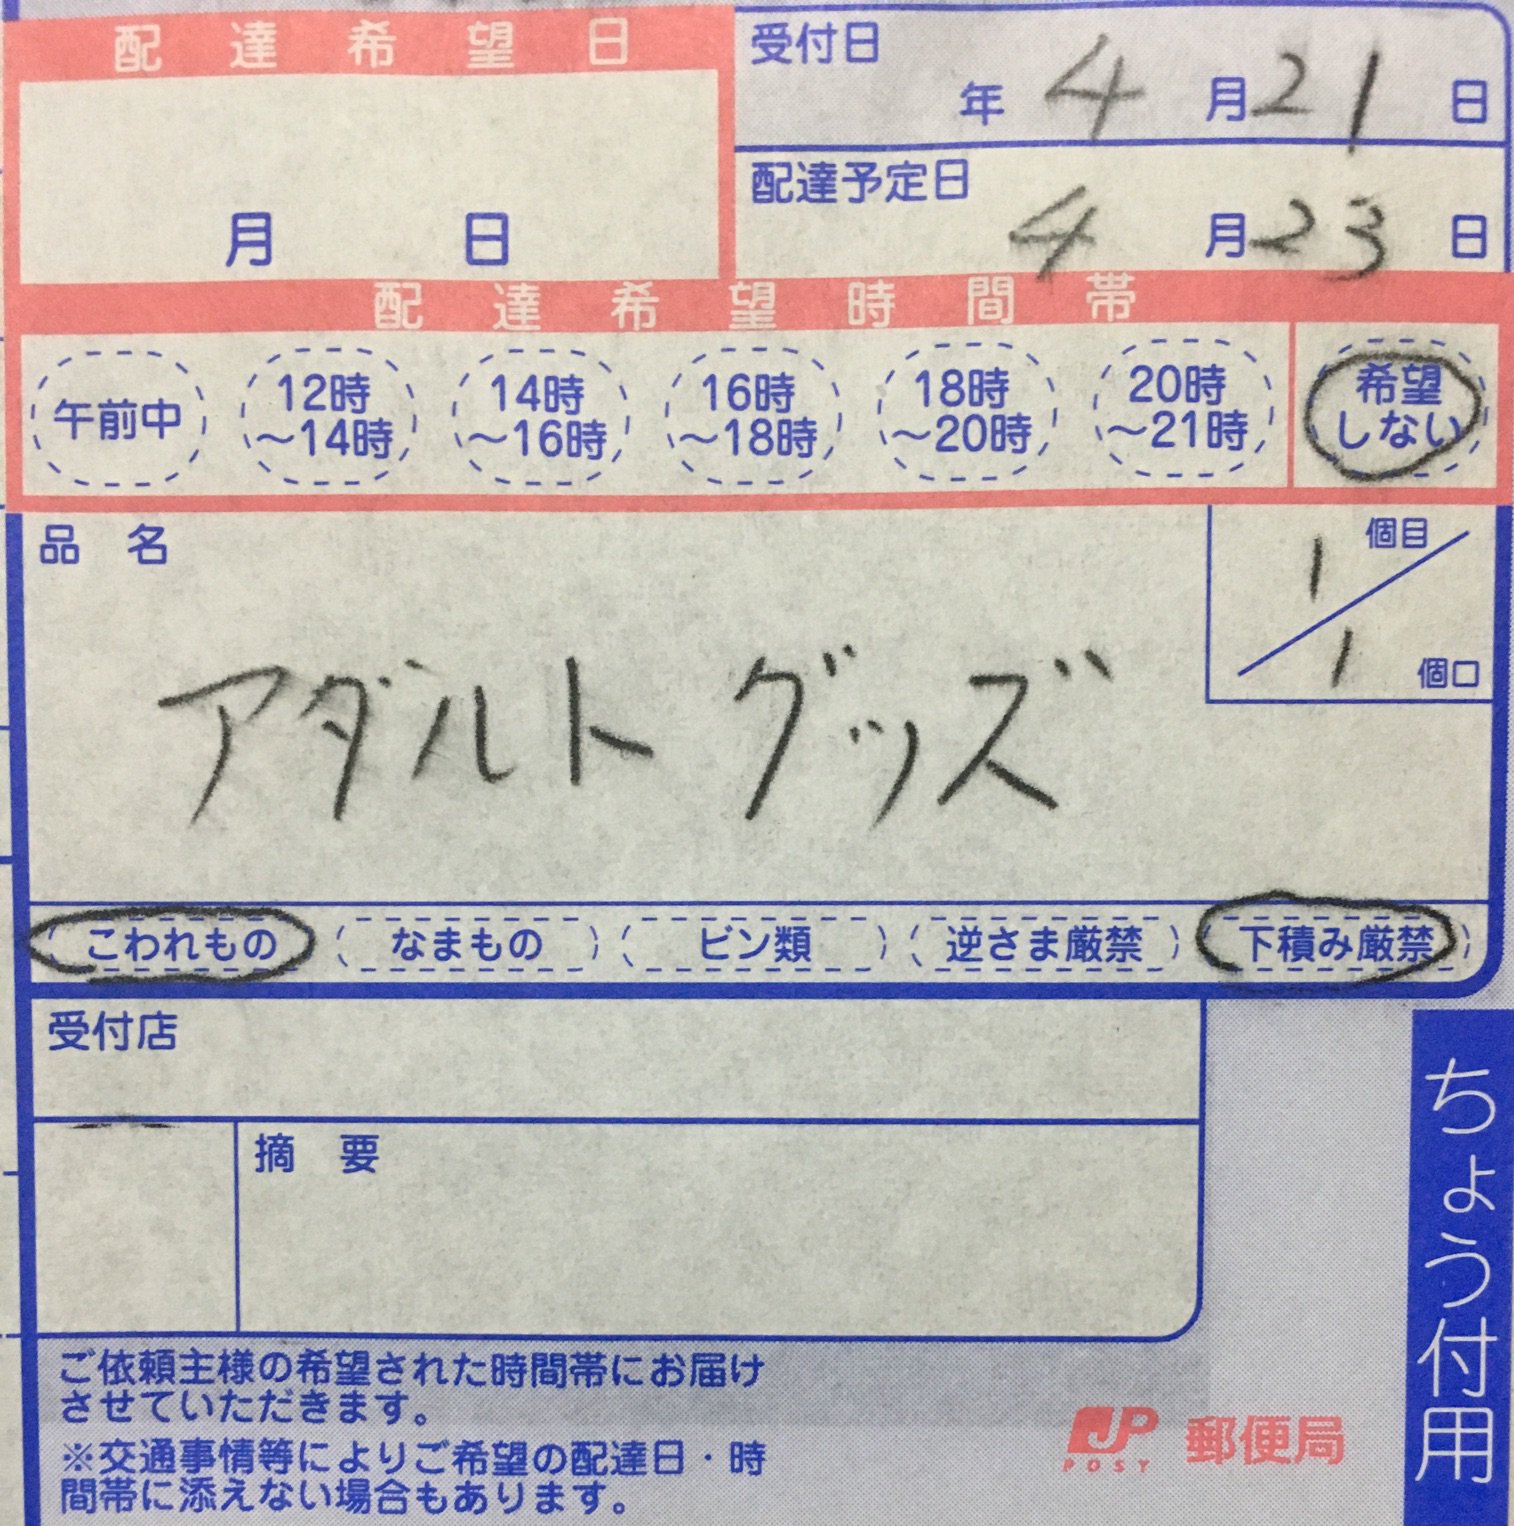 配達希望日
月 日
受付日
年 4月21日
配達予定日
4月23日
配達希望時間帯
午前中
12時
～14時
14時
～16時
16時
～18時
18時
～20時
20時
～21時
希望
しない
品 名
1個目
1個口
アダルトグッズ
こわれもの なまもの ビン類 逆さま厳禁 下積み厳禁
受付店
摘 要
ちょう付用
ご依頼主様の希望された時間帯にお届け
させていただきます。
※交通事情等によりご希望の配達日・時
間帯に添えない場合もあります。
JP 郵便局
POST